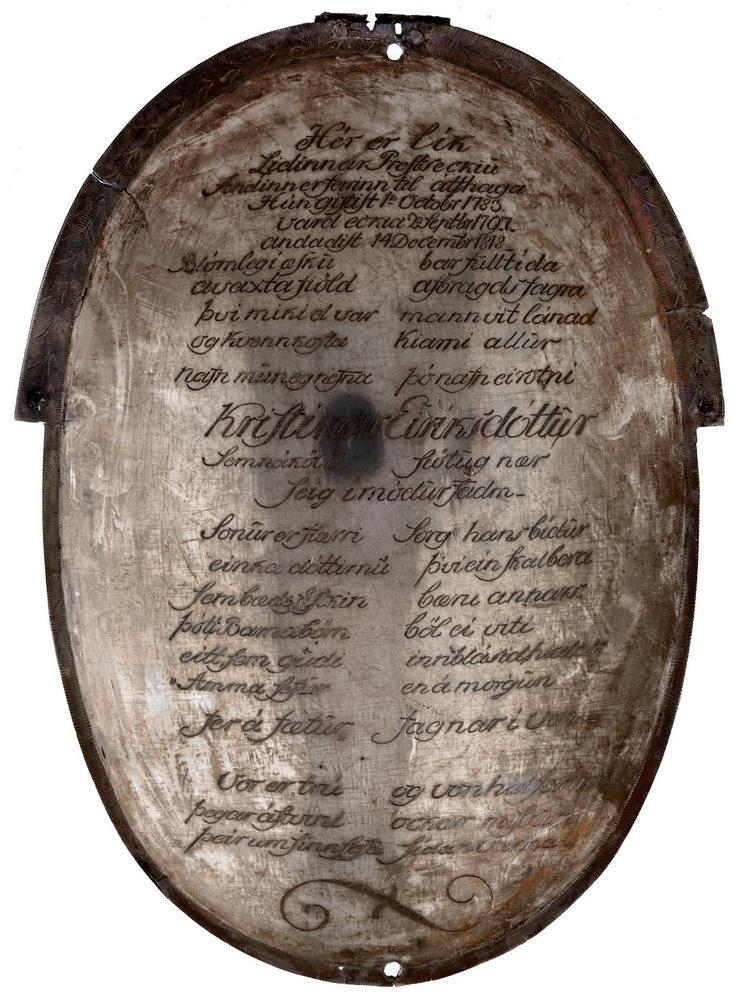 Hér er lík
Lidinnar Prestseckiu
Andinn er farinn til átthaga
Hún giftist 1ta Octobr 1783.
vard eckia 2 Septbr 1797.
andadist 14 Decembr 1818
Blómlegi æsku bar full tída
avaxta fiöld afbragds fagra
því mikid var mannvit lánad
og kvennkosta kiami allur
nafn mun ei nefna þó nafn ei rotni
Kristínar Eiriksdóttur
Sem nú siötug nær
Seig i módur fadm-
Sonur er fiarri Sorg hans bídur
einka dóttirnú þvi ein skal bera
Sem bæds bæru annars
þólj Barnabörn böl ei viti
eitt, sem gudi
"Amma Sefur en á morgun
Fer á fætur Fagnar i
Vor er trú og von
þegar ástvini ockar
þeir um sinn Sídan